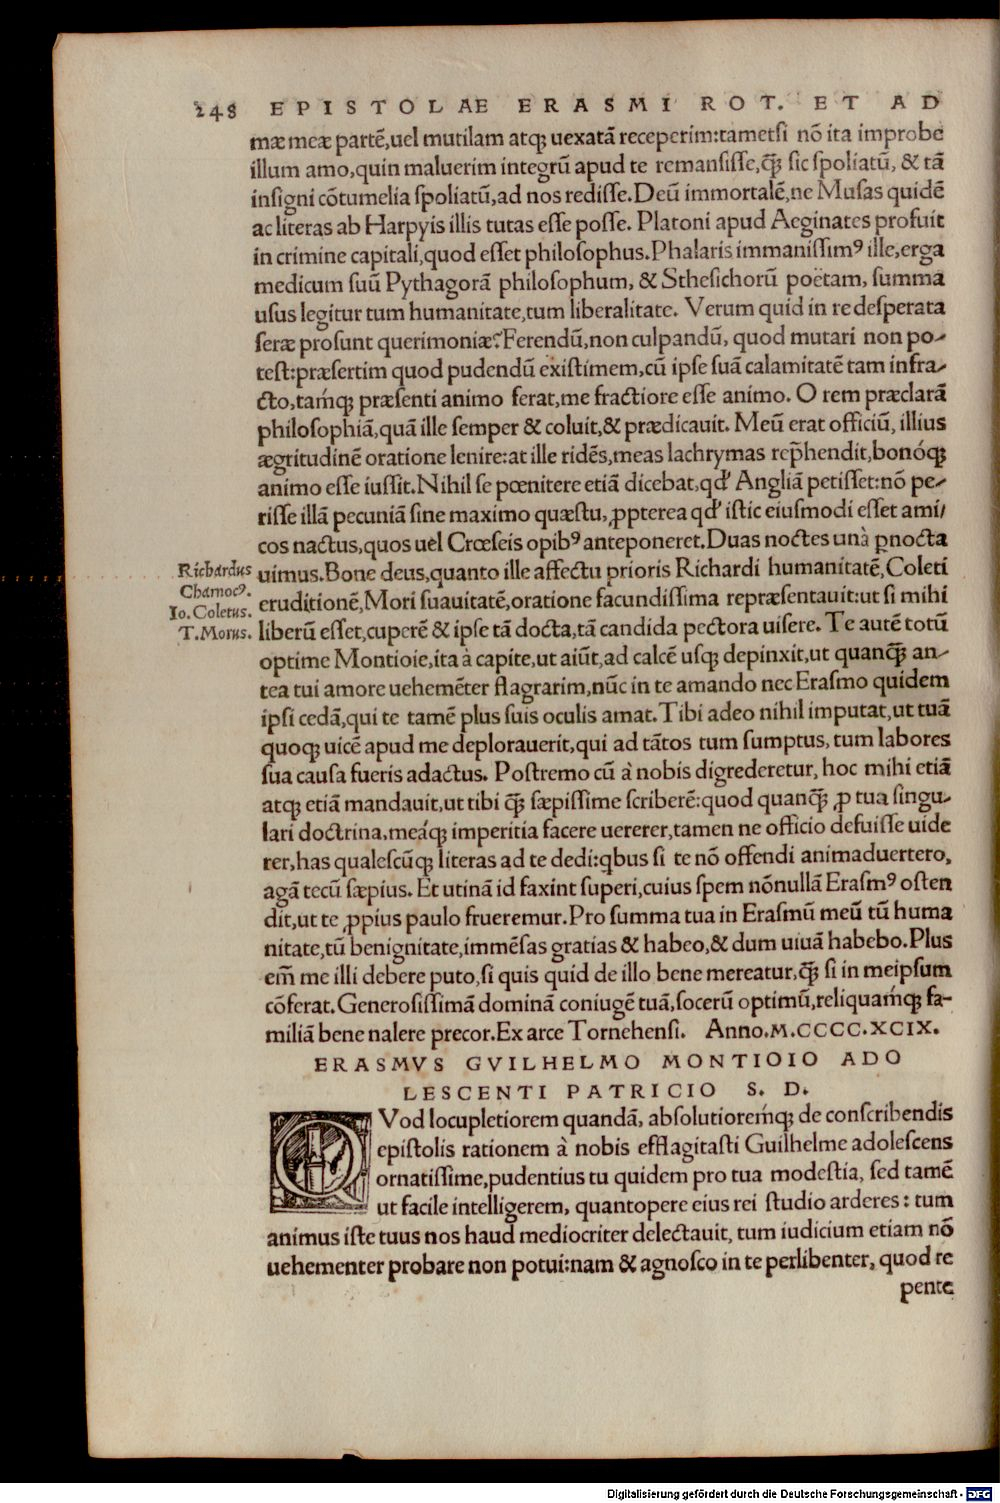 248 EPISTOLAE ERASMI ROT. ET AD
mæ meæ partē,uel mutilam atq; uexatā receperim:tametsi nō ita improbe
illum amo,quin maluerim integrū apud te remansisse,q̄; sic spoliatū, & tā
insigni cōtumelia spoliatū,ad nos redisse.Deū immortalē,ne Musas quidē
ac literas ab Harpyis illis tutas esse posse. Platoni apud Aeginates profuit
in crimine capitali,quod esset philosophus.Phalaris immanissimꝰ ille,erga
medicum suū Pythagorā philosophum, & Sthesichorū poëtam, summa
usus legitur tum humanitate,tum liberalitate. Verum quid in re desperata
seræ prosunt querimoniæ?Ferendū,non culpandū, quod mutari non po-
test:præsertim quod pudendū existimem,cū ipse suā calamitatē tam infra-
cto,tamq; præsenti animo ferat,me fractiore esse animo. O rem præclarā
philosophiā,quā ille semper & coluit,& prædicauit. Meū erat officiū, illius
ægritudinē oratione lenire:at ille ridēs,meas lachrymas rep̄hendit,bonóq;
animo esse iussit.Nihil se pœnitere etiā dicebat,qd' Angliā petisset:nō pe-
risse illā pecuniā sine maximo quæstu,ꝓpterea qd' istic eiusmodi esset ami/
cos nactus,quos uel Crœseis opibꝰ anteponeret.Duas noctes unà ꝑnocta
uimus.Bone deus,quanto ille affectu prioris Richardi humanitatē,Coleti
eruditionē,Mori suauitatē,oratione facundissima repræsentauit:ut si mihi
liberū esset,cuperē & ipse tā docta,tā candida pectora uisere. Te autē totū
optime Montioie,ita à capite,ut aiūt,ad calcē usq; depinxit,ut quanq̄; an-
tea tui amore uehemēter flagrarim,nūc in te amando nec Erasmo quidem
ipsi cedā,qui te tamē plus suis oculis amat.Tibi adeo nihil imputat,ut tuā
quoq; uicē apud me deplorauerit,qui ad tātos tum sumptus, tum labores
sua causa fueris adactus. Postremo cū à nobis digrederetur, hoc mihi etiā
atq; etiā mandauit,ut tibi q̄; sæpissime scriberē:quod quanq̄; ꝓ tua singu-
lari doctrina,meáq; imperitia facere uererer,tamen ne officio defuisse uide
rer,has qualescūq; literas ad te dedi:qbus si te nō offendi animaduertero,
agā tecū sæpius. Et utinā id faxint superi,cuius spem nōnullā Erasmꝰ osten
dit,ut te ꝓpius paulo frueremur.Pro summa tua in Erasmū meū tū huma
nitate,tū benignitate,immēsas gratias & habeo,& dum uiuā habebo.Plus
em̄ me illi debere puto,si quis quid de illo bene mereatur,q̄; si in meipsum
cōferat.Generosissimā dominā coniugē tuā,socerū optimū,reliquamq; fa-
miliā bene nalere precor.Ex arce Tornehensi. Anno.M.CCCC.XCIX.
Richardus
Chamocꝰ.
Io.Coletus.
T.Morus.
ERASMVS GVILHELMO MONTIOIO ADO
LESCENTI PATRICIO S. D.
QVod locupletiorem quandā, absolutioremq; de conscribendis
epistolis rationem à nobis efflagitasti Guilhelme adolescens
ornatissime,pudentius tu quidem pro tua modestia, sed tamē
ut facile intelligerem, quantopere eius rei studio arderes: tum
animus iste tuus nos haud mediocriter delectauit, tum iudicium etiam nō
uehementer probare non potui:nam & agnosco in te perlibenter, quod re
pente
Digitalisierung gefördert durch die Deutsche Forschungsgemeinschaft - DFG